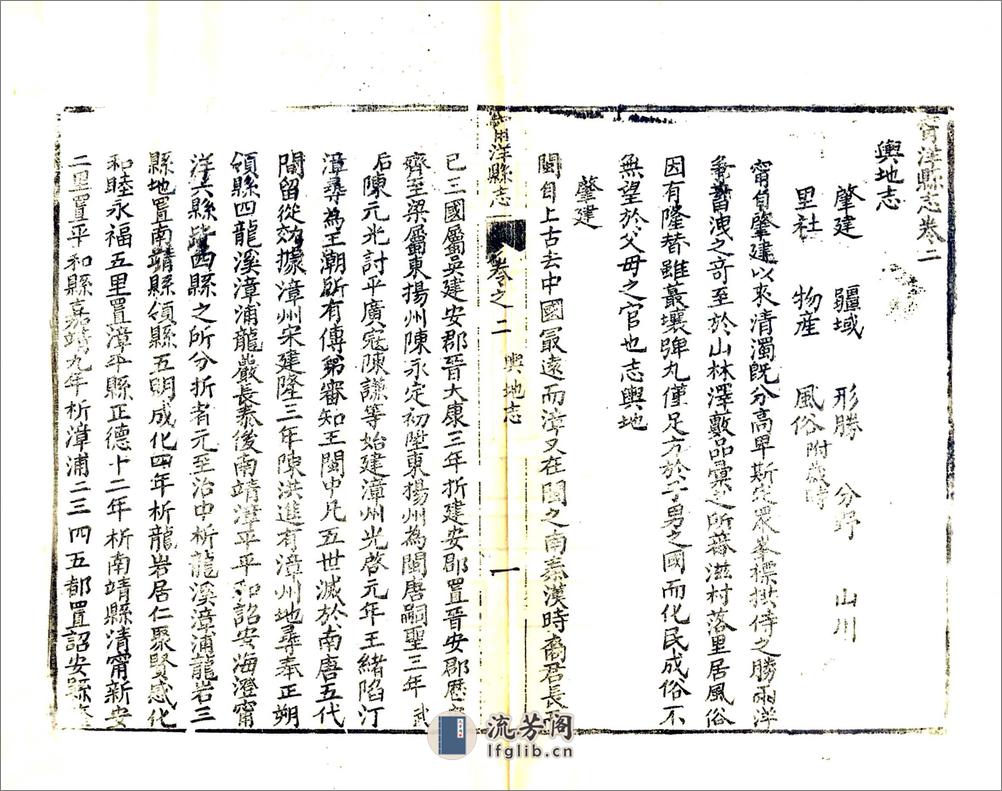 寗洋縣志卷二
輿地志
肇建 疆域 形勝 分野 山川
里社 物產 風俗附歲時
甯自肇建以來清濁既分高卑斯定眾峯標拱侍之勝兩洋
蓄洩之奇至於山林澤藪品彙之所蕃滋村落里居風俗
因有隆替雖蕞壤弹丸僅足方於子男之國而化民成俗不
無望於父母之官也志輿地
肇建
閩自上古去中國最遠而漳又在閩之南秦漢時裔君長而
甯洋縣志 卷之二 輿地志 一
已三國屬吳建安郡晉大康三年折建安郡置晉安郡歷
齊至梁屬東揚州陳永定初陞東揚州為閩唐嗣聖三年武
后陳元光討平廣寇陳謙等始建漳州光啓元年王緒陷汀
漳尋為王潮所有傳弟審知王閩中凡五世滅於南唐五代
間留從効據漳州宋建隆三年陳洪進有漳州地尋奉正朔
領縣四龍溪漳浦龍巖長泰後南靖漳平平和詔安海澄甯
洋六縣皆四縣之所分折者元至治中析龍溪漳浦龍岩三
縣地置南靖縣領縣五明成化四年析龍岩居仁聚賢感化
和睦永福五里置漳平縣正德十二年析南靖縣清甯新安
二里置平和縣嘉靖九年析漳浦二三四五都置詔安縣
流芳阁
lfglib.cn